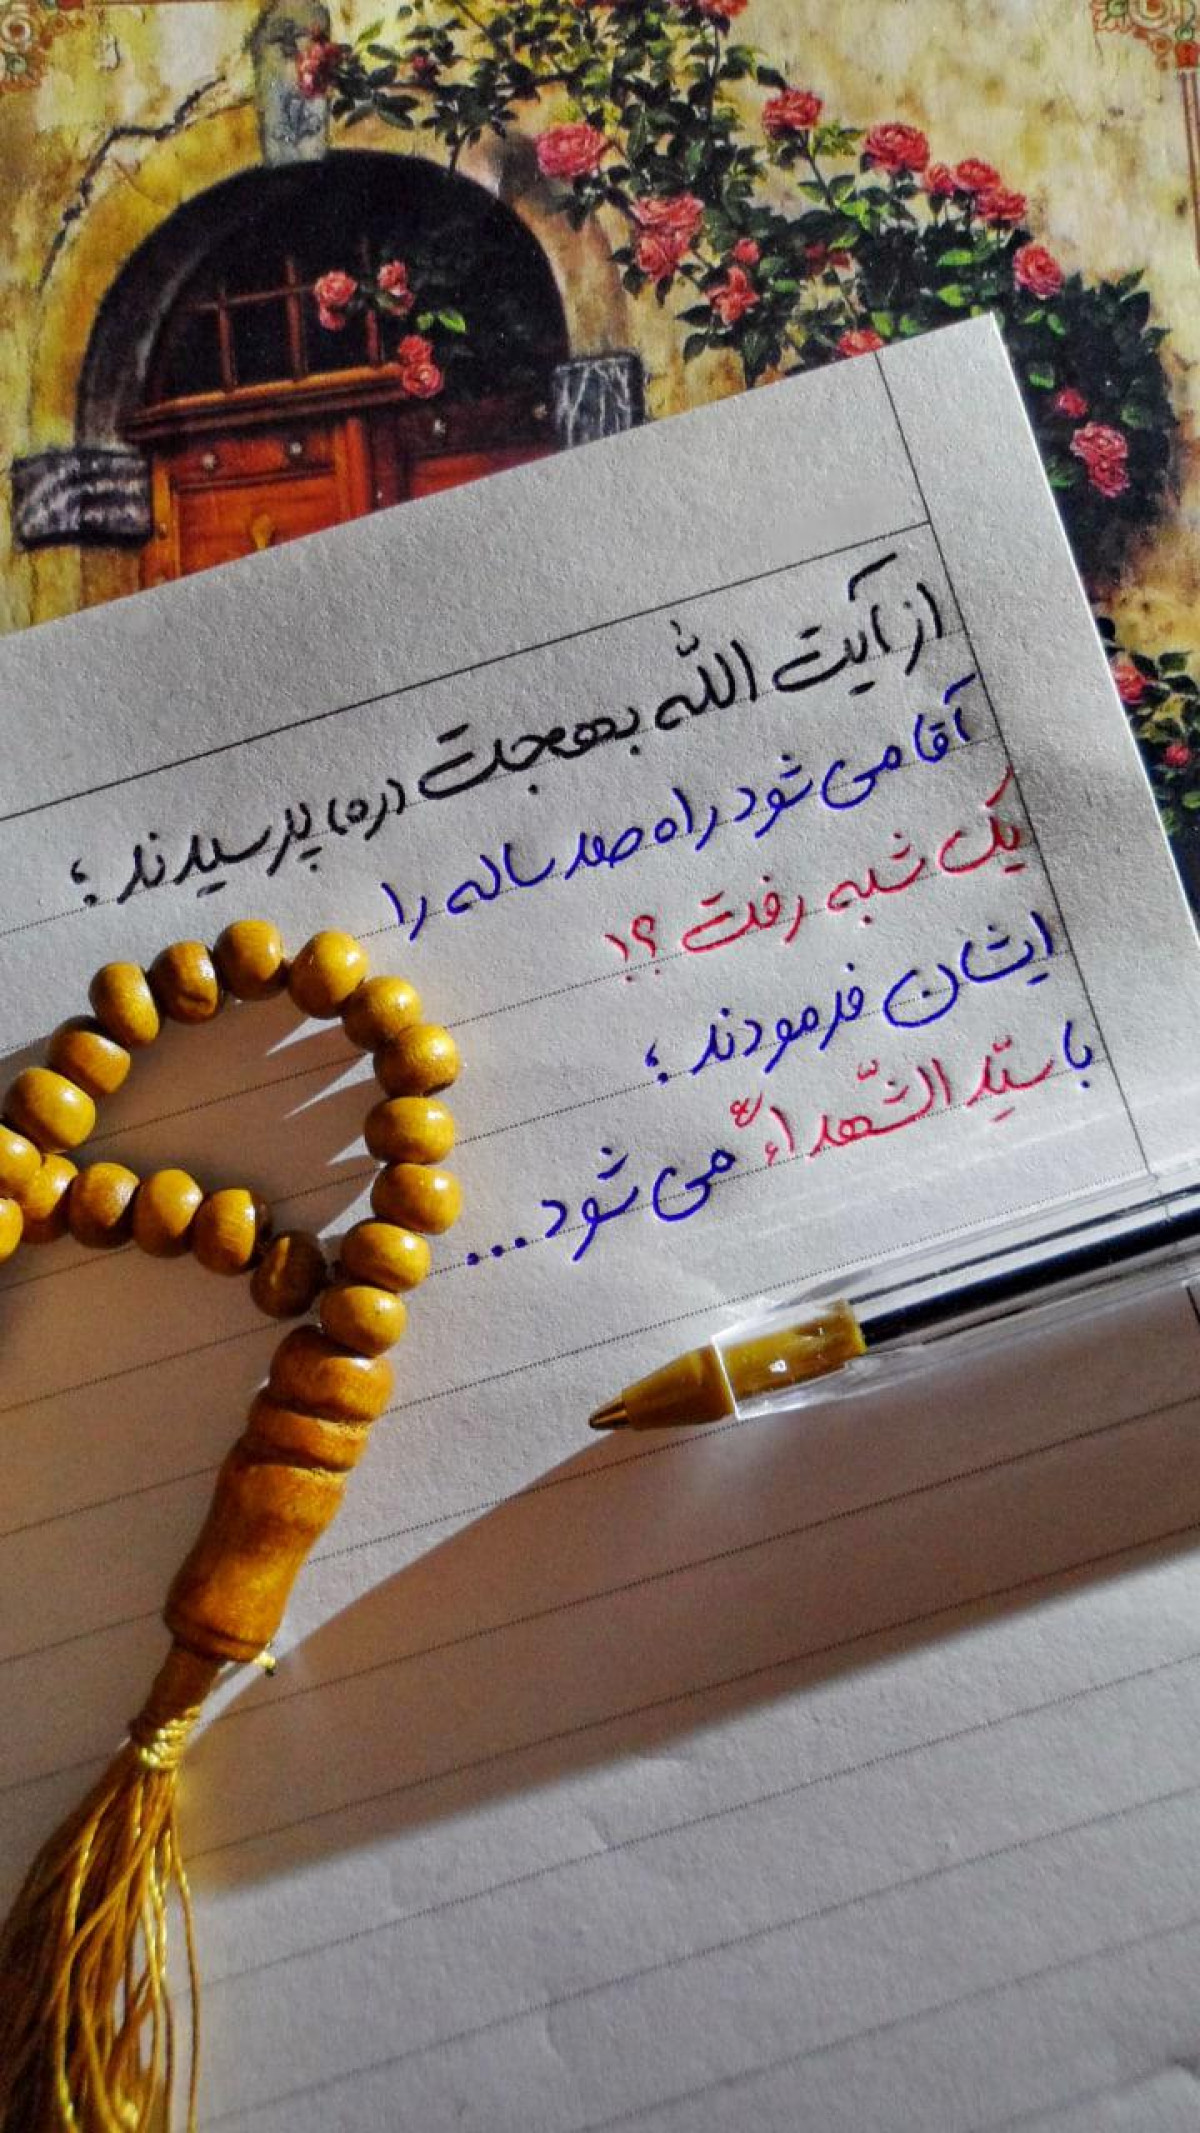 از آیت اللّه بهجت (ره) پرسیدند ؛
آقا می شود راه صد ساله را
یک شبه رفت ؟!
ایشان فرمودند ؛
با سیّد الشّهداءِ ؏ می شود...